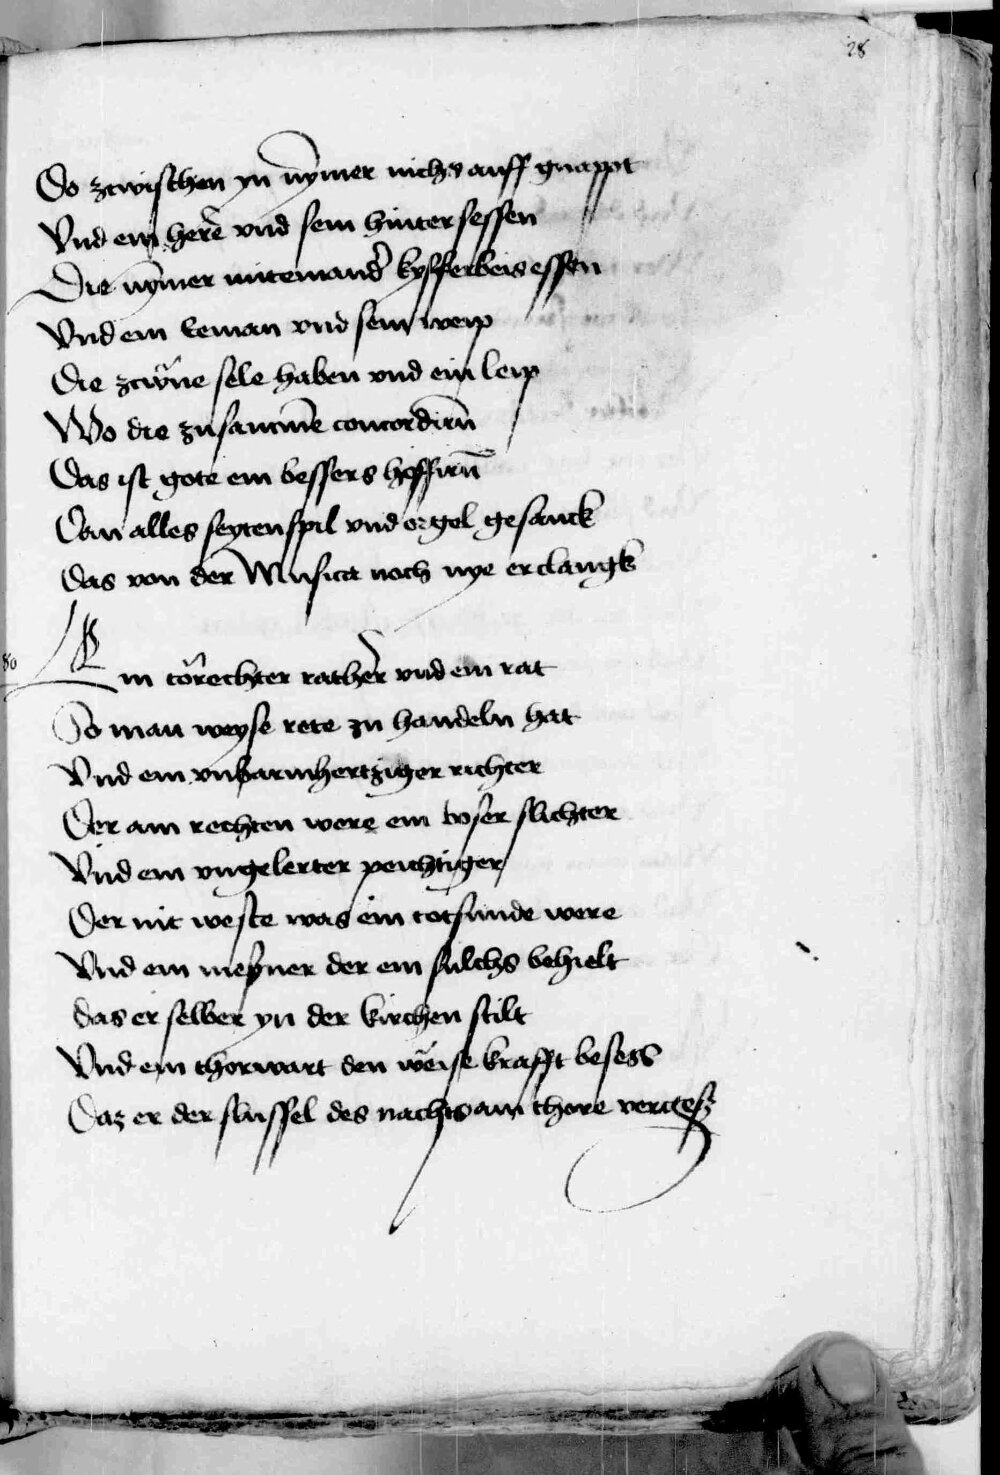 28
Do zcwischen yn nymer nichs auff gnappt
Vnd ein here vnd sein hintersessen
Die nymer miteinander kyfferbeis essen
Vnd ein eeman vnd sein weip
Die zcwne sele haben vnd ein leip
Wo die zusamme concordirn
Das ist gote ein bessers hoffirn
Dan alles seytenspil vnd orgel gesanck
Das von der Musica noch nye erclangk
80
Ein törechter rather vnd ein rat
So man weyse rete zu handeln hat
Vnd ein vnbarmhertziger richter
Der am rechten were ein boser slichter
Vnd ein vngelerter peichtiger
Der nit weste was ein totsunde were
Vnd ein meßner der ein sulchs behielt
das er selber yn der kirchen stilt
Vnd ein thorwart den weise krafft besess
Daz er der slussel des nachts am thore vergeß